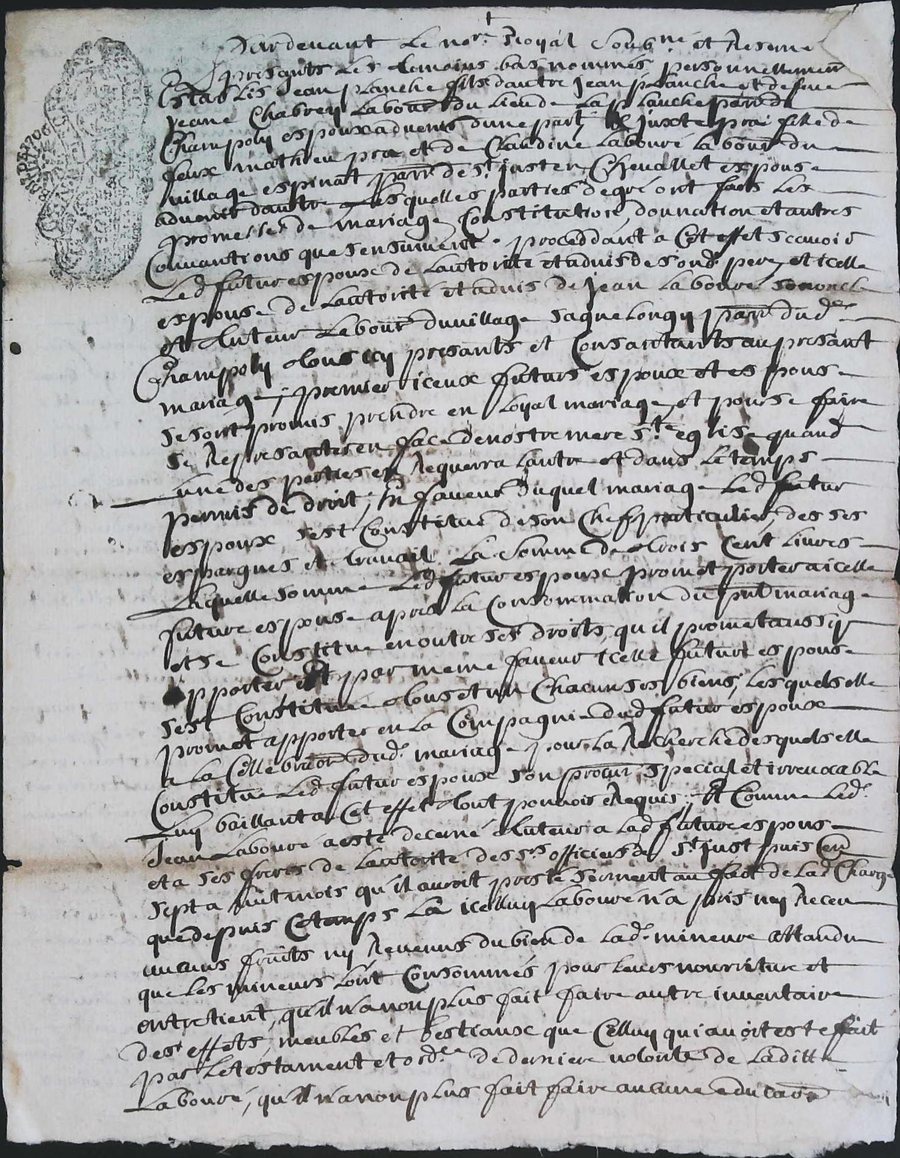 Pardevant Le no.re Royal Soubz.né etResme
presants les temoins bas nommés personnellement
Establis Jean planche fils dautre Jean planche et defune
jeane Chabrey Labour. du lieu de La planche parr. de
Champoly espoux advenir dune part, & juxte prai fille de
feux mathieu prai et de Claudine Labouré labour. du
village espinat parr. de st juster Chevallet espouse
advenir dautre Lesquelles parties de gré ont faits Les
promesses de mariage Constitution, donnation et autres
Convantions que sensuivent. proceddant a Cet effet scavoir
Led. futur espoux de Lautorité et advis de sond. pere, et icelle
espouse de Lautorité et advis de jean Labouré son oncle
et tuteur Labour. du village sagnelongy parr. dud.
Champoly tous icy presants et Consantants au presant
mariage, premier iceux futurs espoux et espouse
se sont promis prendre en loyal mariage, et pour se faire
se Representer en face de nostre mere s.te eglise quand
Lune des parties en Requerra Lautre et dans Le temps
permis de droit, En faveur duquel mariage Led. futur
espoux sest Constitué de son Chef particulier, des ses
espargnes et travail La somme de trois Cent livres
Laquelle somme Led. futur espoux promet porter a icelle
future espouse apres La Consommation du pnt mariage
et se Constitue en outre ses droits, qu'il promet aussy
apporter Et par meme faveur icelle future espouse
sest Constitué tous et un Chacuns ses biens, lesquels elle
promet apporter en La Compagnie dud. futur espoux
a la Cellebraon dud. mariage, pour La Recherche desquels elle
Constitue Led. futur espoux son procur. special et irrevocable
Luy baillant a Cet effet tout pouvoir Requis, Et Comme Led.
Jean Labouré a esté decerné tuteur a lad. future espouse
et a ses freres de Lautorité des srs officiers de st just puis en
sept a huit mois qu'il auroit presté serment au fait de lad. Charge
que depuis Ce temps La icelluy Labouré n'a pris ny Receu
aucuns fruits ny Revenus du bien de Lad. mineure attandu
que les mineurs lont Consommés pour leurs nourriture et
entretient, qu'il n'a non plus fait faire autre inventaire
des effets, meubles et bestiaux que Celluy qui avoit esté fait
par Le testament et ord.re de derniere volonté de Laditte
Labouré, qu'il n'a non plus fait faire aucune